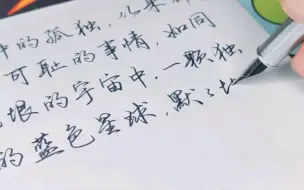 中的孤独，从来
可耻的事情，如同
垠的宇宙中，一颗独
的蓝色星球，默默地